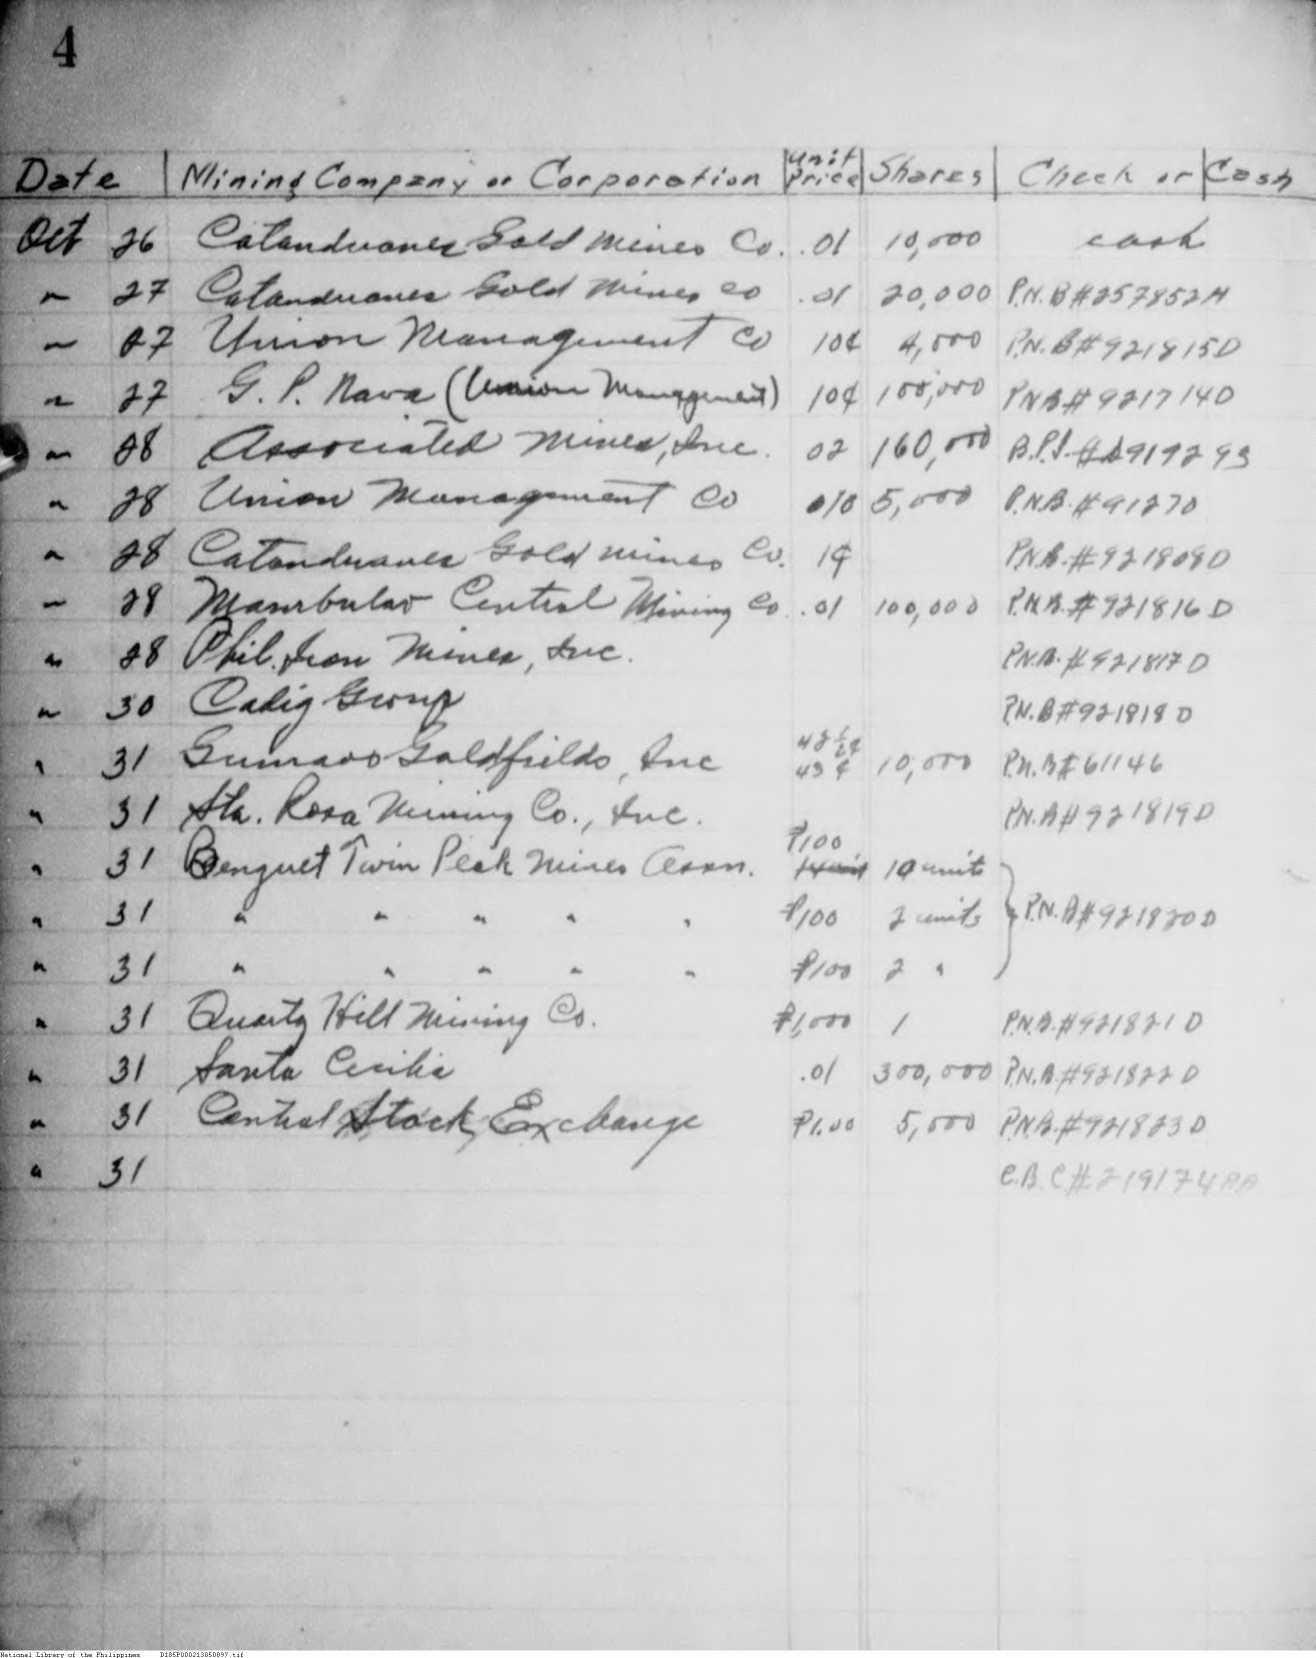 4
Date Mining Company or Corporation Unit Price Shares Check or Cash
Oct 26 Catanduanes Gold Mines Co. .01 10,000 cash
" 27 Catanduanes Gold Mines Co .01 20,000 P.N.B#257852H
" 27 Union Management Co 10¢ 4,000 P.N.B#921815D
" 27 G. P. Nava (Union Management) 10¢ 100,000 PNB#921714D
" 28 Associated Mines, Inc. 02 160,000 B.P.I.
" 28 Union Management Co 010 5,000 P.N.B.#91270
" 28 Catanduanes Gold Mines Co. 1¢ P.N.B.#921808D
" 28 Mambulao Central Mining Co .01 100,000 P.N.B.#921816D
" 28 Phil. Iron Mines, Inc. P.N.B.#921817D
" 30 Cadig Group P.N.B#921818D
42½¢
" 31 Gumaos Goldfields, Inc 43¢ 10,000 P.N.B#61146
" 31 Sta. Rosa Mining Co., Inc. P.N.B#921819D
₱100
" 31 Benguet Twin Peak Mines Assn. 10 units
" 31 " " " " " ₱100 2 units P.N.B#921820D
" 31 " " " " " ₱100 2 "
" 31 Quartz Hill Mining Co. ₱1,000 1 P.N.B.#921821D
" 31 Santa Cecilia .01 300,000 P.N.B.#921822D
" 31 Central Stock Exchange ₱1.00 5,000 P.N.B.#921823D
" 31 C.B.C#219174
National Library of the Philippines D185P000213050897.tif